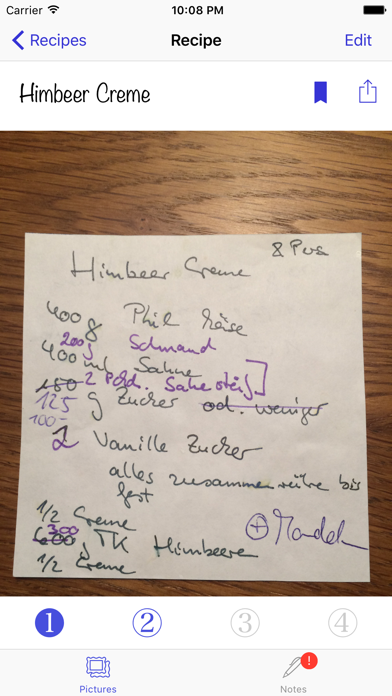 Carrier 10:08 PM
Recipes Recipe Edit
Himbeer Creme
8 Pers
Himbeer Creme
400 g Phil Käse
200 g Schmand
400 ml Sahne
150 2 Pckd. Sahnesteif
125 g Zucker od. weniger
100-
2 Vanille Zucker
alles zusammen rühre bis
fest
1/2 Creme
300
600 g TK Himbeere
⊕ Mandel
1/2 Creme
1 2 3 4
!
Pictures Notes